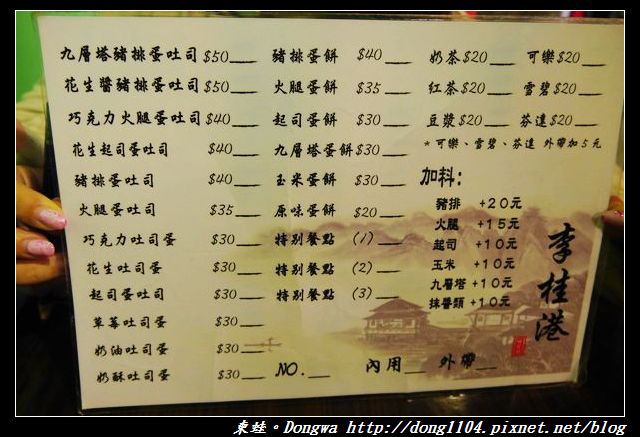 九層塔豬排蛋吐司 $50
花生醬豬排蛋吐司 $50
巧克力火腿蛋吐司 $40
花生起司蛋吐司 $40
豬排蛋吐司 $40
火腿蛋吐司 $35
巧克力吐司蛋 $30
花生吐司蛋 $30
起司蛋吐司 $30
草莓吐司蛋 $30
奶油吐司蛋 $30
奶酥吐司蛋 $30
豬排蛋餅 $40
火腿蛋餅 $35
起司蛋餅 $30
九層塔蛋餅 $30
玉米蛋餅 $30
原味蛋餅 $20
特別餐點 (1)
特別餐點 (2)
特別餐點 (3)
NO. 內用 外帶
奶茶 $20 可樂 $20
紅茶 $20 雪碧 $20
豆漿 $20 芬達 $20
*可樂、雪碧、芬達 外帶加5元
加料:
豬排 +20元
火腿 +15元
起司 +10元
玉米 +10元
九層塔 +10元
抹醬類 +10元
李桂港
東蛙。Dongwa http://dong1104.pixnet.net/blog